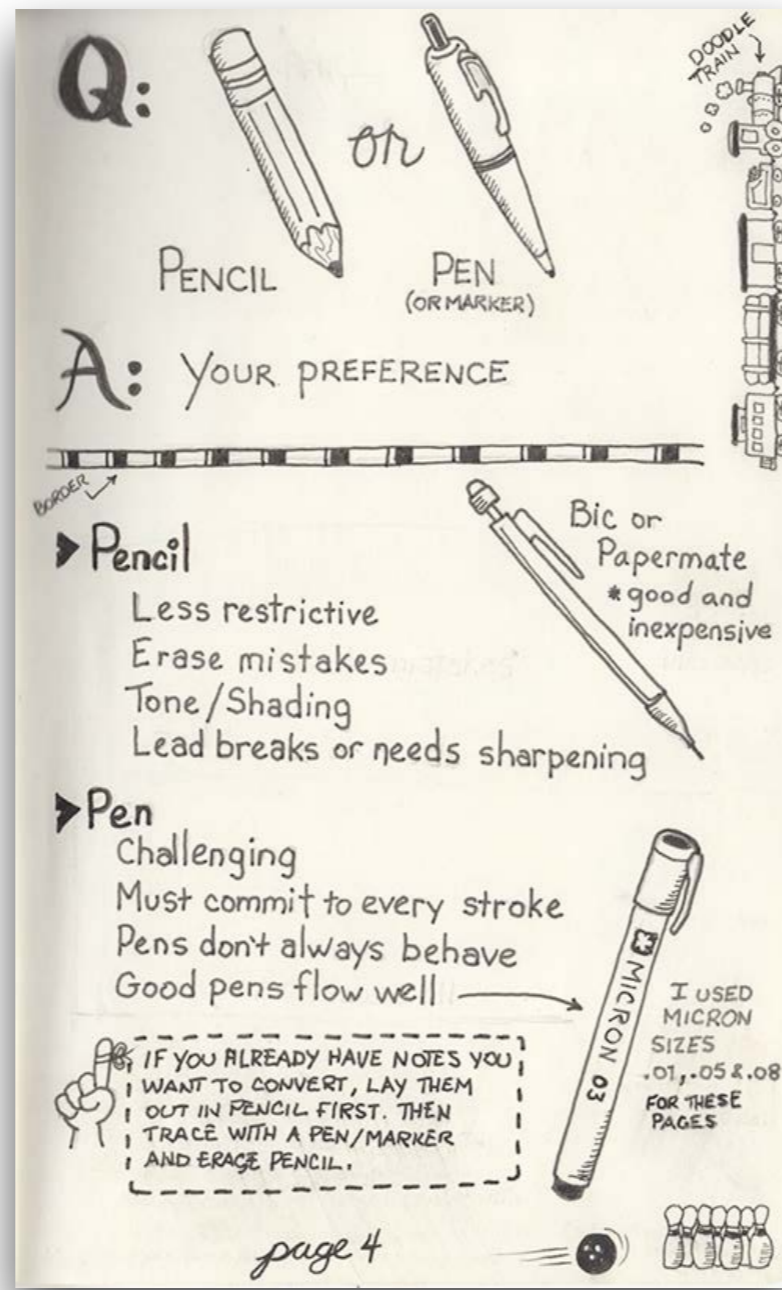 Q:
or
DOODLE
TRAIN
PENCIL
PEN
(OR MARKER)
A: YOUR PREFERENCE
BORDER
Pencil
Less restrictive
Erase mistakes
Tone/Shading
Lead breaks or needs sharpening
Bic or
Papermate
*good and
inexpensive
Pen
Challenging
Must commit to every stroke
Pens don't always behave
Good pens flow well
MICRON 03
I USED
MICRON
SIZES
.01, .05 & .08
FOR THESE
PAGES
IF YOU ALREADY HAVE NOTES YOU
WANT TO CONVERT, LAY THEM
OUT IN PENCIL FIRST. THEN
TRACE WITH A PEN/MARKER
AND ERASE PENCIL.
page 4